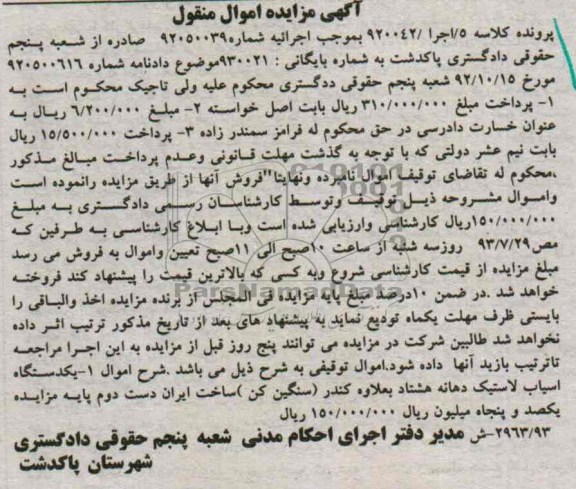 آگهی مزایده اموال منقول
پرونده کلاسه ۵/اجرا /۹۲۰۰۴۲ بموجب اجرائیه شماره۹۲۰۵۰۰۳۹ صادره از شعبه پنجم
حقوقی دادگستری پاکدشت به شماره بایگانی : ۹۳۰۰۲۱موضوع دادنامه شماره ۹۲۰۵۰۰۶۱۶
مورخ ۹۲/۱۰/۱۵ شعبه پنجم حقوقی ددگستری محکوم علیه ولی تاجیک محکوم است به
۱- پرداخت مبلغ ۳۱۰/۰۰۰/۰۰۰ ریال بابت اصل خواسته ۲- مبلغ ۶/۲۰۰/۰۰۰ ریال به
عنوان خسارت دادرسی در حق محکوم له فرامرز سمندر زاده ۳- پرداخت ۱۵/۵۰۰/۰۰۰ ریال
بابت نیم عشر دولتی که با توجه به گذشت مهلت قانونی وعدم پرداخت مبالغ مذکور
،محکوم له تقاضای توقیف اموال نامبرده ونهایتا"فروش آنها از طریق مزایده رانموده است
واموال مشروحه ذیل توقیف وتوسط کارشناسان رسمی دادگستری به مبلغ
۱۵۰/۰۰۰/۰۰۰ریال کارشناسی وارزیابی شده است وبا ابلاغ کارشناسی به طرفین که
مص۹۳/۷/۲۹ روزسه شبه از ساعت ۱۰صبح الی ۱۱صبح تعیین واموال به فروش می رسد
مبلغ مزایده از قیمت کارشناسی شروع وبه کسی که بالاترین قیمت را پیشنهاد کند فروخته
خواهد شد .در ضمن ۱۰درصد مبلغ پایه مزایده فی المجلس از برنده مزایده اخذ والباقی را
بایستی ظرف مهلت یکماه تودیع نماید به پیشنهاد های بعد از تاریخ مذکور ترتیب اثر داده
نخواهد شد طالبین شرکت در مزایده می توانند پنج روز قبل از مزایده به این اجرا مراجعه
تاترتیب بازید آنها داده شود.اموال توقیفی به شرح ذیل می باشد .شرح اموال ۱-یکدستگاه
اسیاب لاستیک دهانه هشتاد بعلاوه کندر (سنگین کن )ساخت ایران دست دوم پایه مزایده
یکصد و پنجاه میلیون ریال ۱۵۰/۰۰۰/۰۰۰ ریال
۲۹۶۳/۹۳-ش مدیر دفتر اجرای احکام مدنی شعبه پنجم حقوقی دادگستری
شهرستان پاکدشت
ParsNamadData